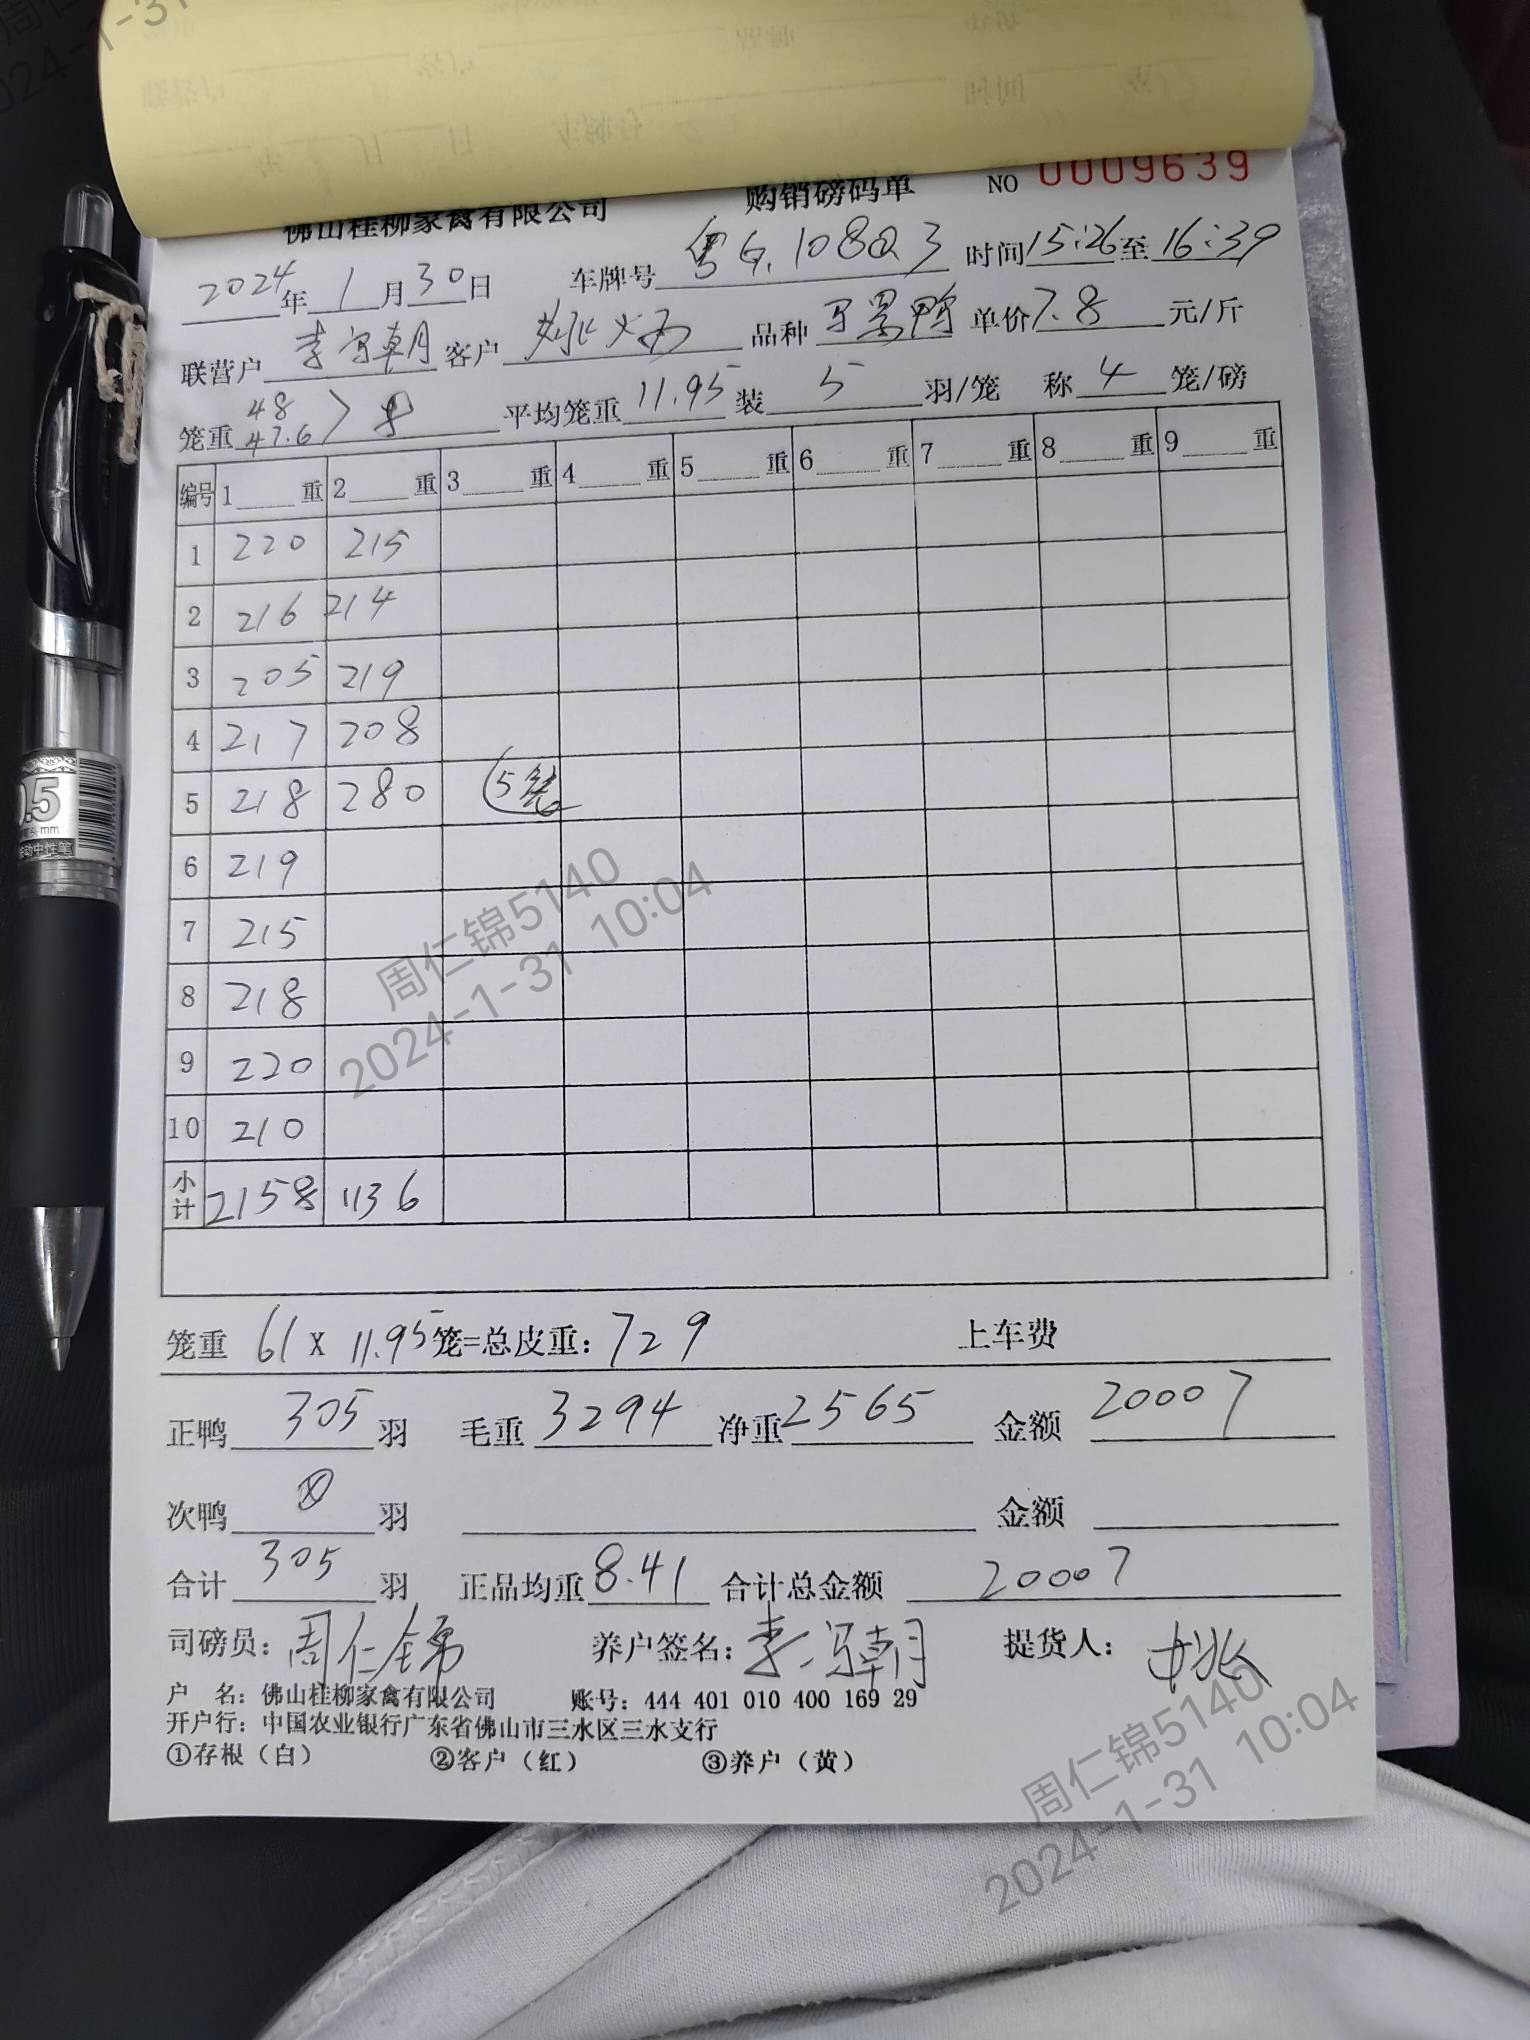 佛山桂柳家禽有限公司 购销磅码单 NO 0009639
2024年1月30日 车牌号 粤G.108Q3 时间15:26至16:39
联营户 李 朝 客户 姚 品种 鸭 单价7.8元/斤
笼重 48 47.6 平均笼重11.95 装5羽/笼 称4笼/磅
编号 1 重 2 重 3 重 4 重 5 重 6 重 7 重 8 重 9 重
1 220 215
2 216 214
3 205 219
4 217 208
5 218 280 5笼
6 219
7 215
8 218
9 220
10 210
小计 2158 1136
笼重 61 x 11.95笼=总皮重:729 上车费
正鸭305羽 毛重3294 净重2565 金额20007
次鸭 羽 金额
合计305羽 正品均重8.41 合计总金额20007
司磅员:周仁锦 养户签名:李 朝 提货人:姚
户 名:佛山桂柳家禽有限公司 账号:444 401 010 400 169 29
开户行:中国农业银行广东省佛山市三水区三水支行
①存根(白) ②客户(红) ③养户(黄)
0.5
mm
按动中性笔
周仁锦5140
2024-1-31 10:04
周仁锦5140
2024-1-31 10:04